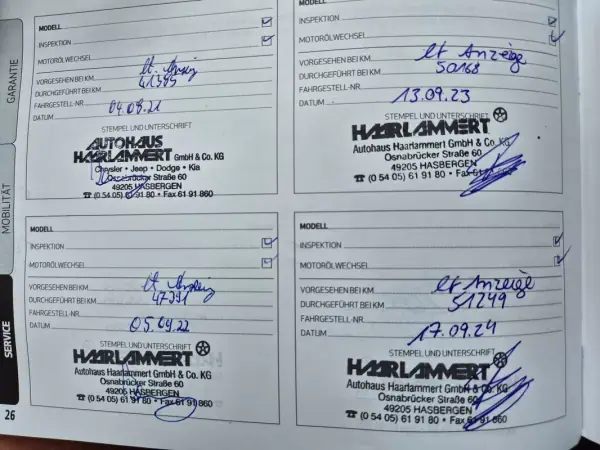 GARANTIE
MOBILITÄT
SERVICE
26
MODELL
INSPEKTION
MOTORÖLWECHSEL
VORGESEHEN BEI KM lt. Anzeige
DURCHGEFÜHRT BEI KM
FAHRGESTELL-NR.
DATUM 04.09.21
STEMPEL UND UNTERSCHRIFT
AUTOHAUS
HAARLAMMERT GmbH & Co. KG
Chrysler • Jeep • Dodge • Kia
Osnabrücker Straße 60
49205 HASBERGEN
☎ (0 54 05) 61 91 80 • Fax 61 91 860
MODELL
INSPEKTION
MOTORÖLWECHSEL
VORGESEHEN BEI KM lt Anzeige
DURCHGEFÜHRT BEI KM 50168
FAHRGESTELL-NR.
DATUM 13.09.23
STEMPEL UND UNTERSCHRIFT
HAARLAMMERT
Autohaus Haarlammert GmbH & Co. KG
Osnabrücker Straße 60
49205 HASBERGEN
☎ (0 54 05) 61 91 80 • Fax 61
MODELL
INSPEKTION
MOTORÖLWECHSEL
VORGESEHEN BEI KM lt Anzeige
DURCHGEFÜHRT BEI KM
FAHRGESTELL-NR.
DATUM 05.09.22
STEMPEL UND UNTERSCHRIFT
HAARLAMMERT
Autohaus Haarlammert GmbH & Co. KG
Osnabrücker Straße 60
49205 HASBERGEN
☎ (0 54 05) 61 91 80 • Fax 61 91 860
MODELL
INSPEKTION
MOTORÖLWECHSEL
VORGESEHEN BEI KM lt Anzeige
DURCHGEFÜHRT BEI KM 51249
FAHRGESTELL-NR.
DATUM 17.09.24
STEMPEL UND UNTERSCHRIFT
HAARLAMMERT
Autohaus Haarlammert GmbH & Co. KG
Osnabrücker Straße 60
49205 HASBERGEN
☎ (0 54 05) 61 91 80 • Fax 61 91 860